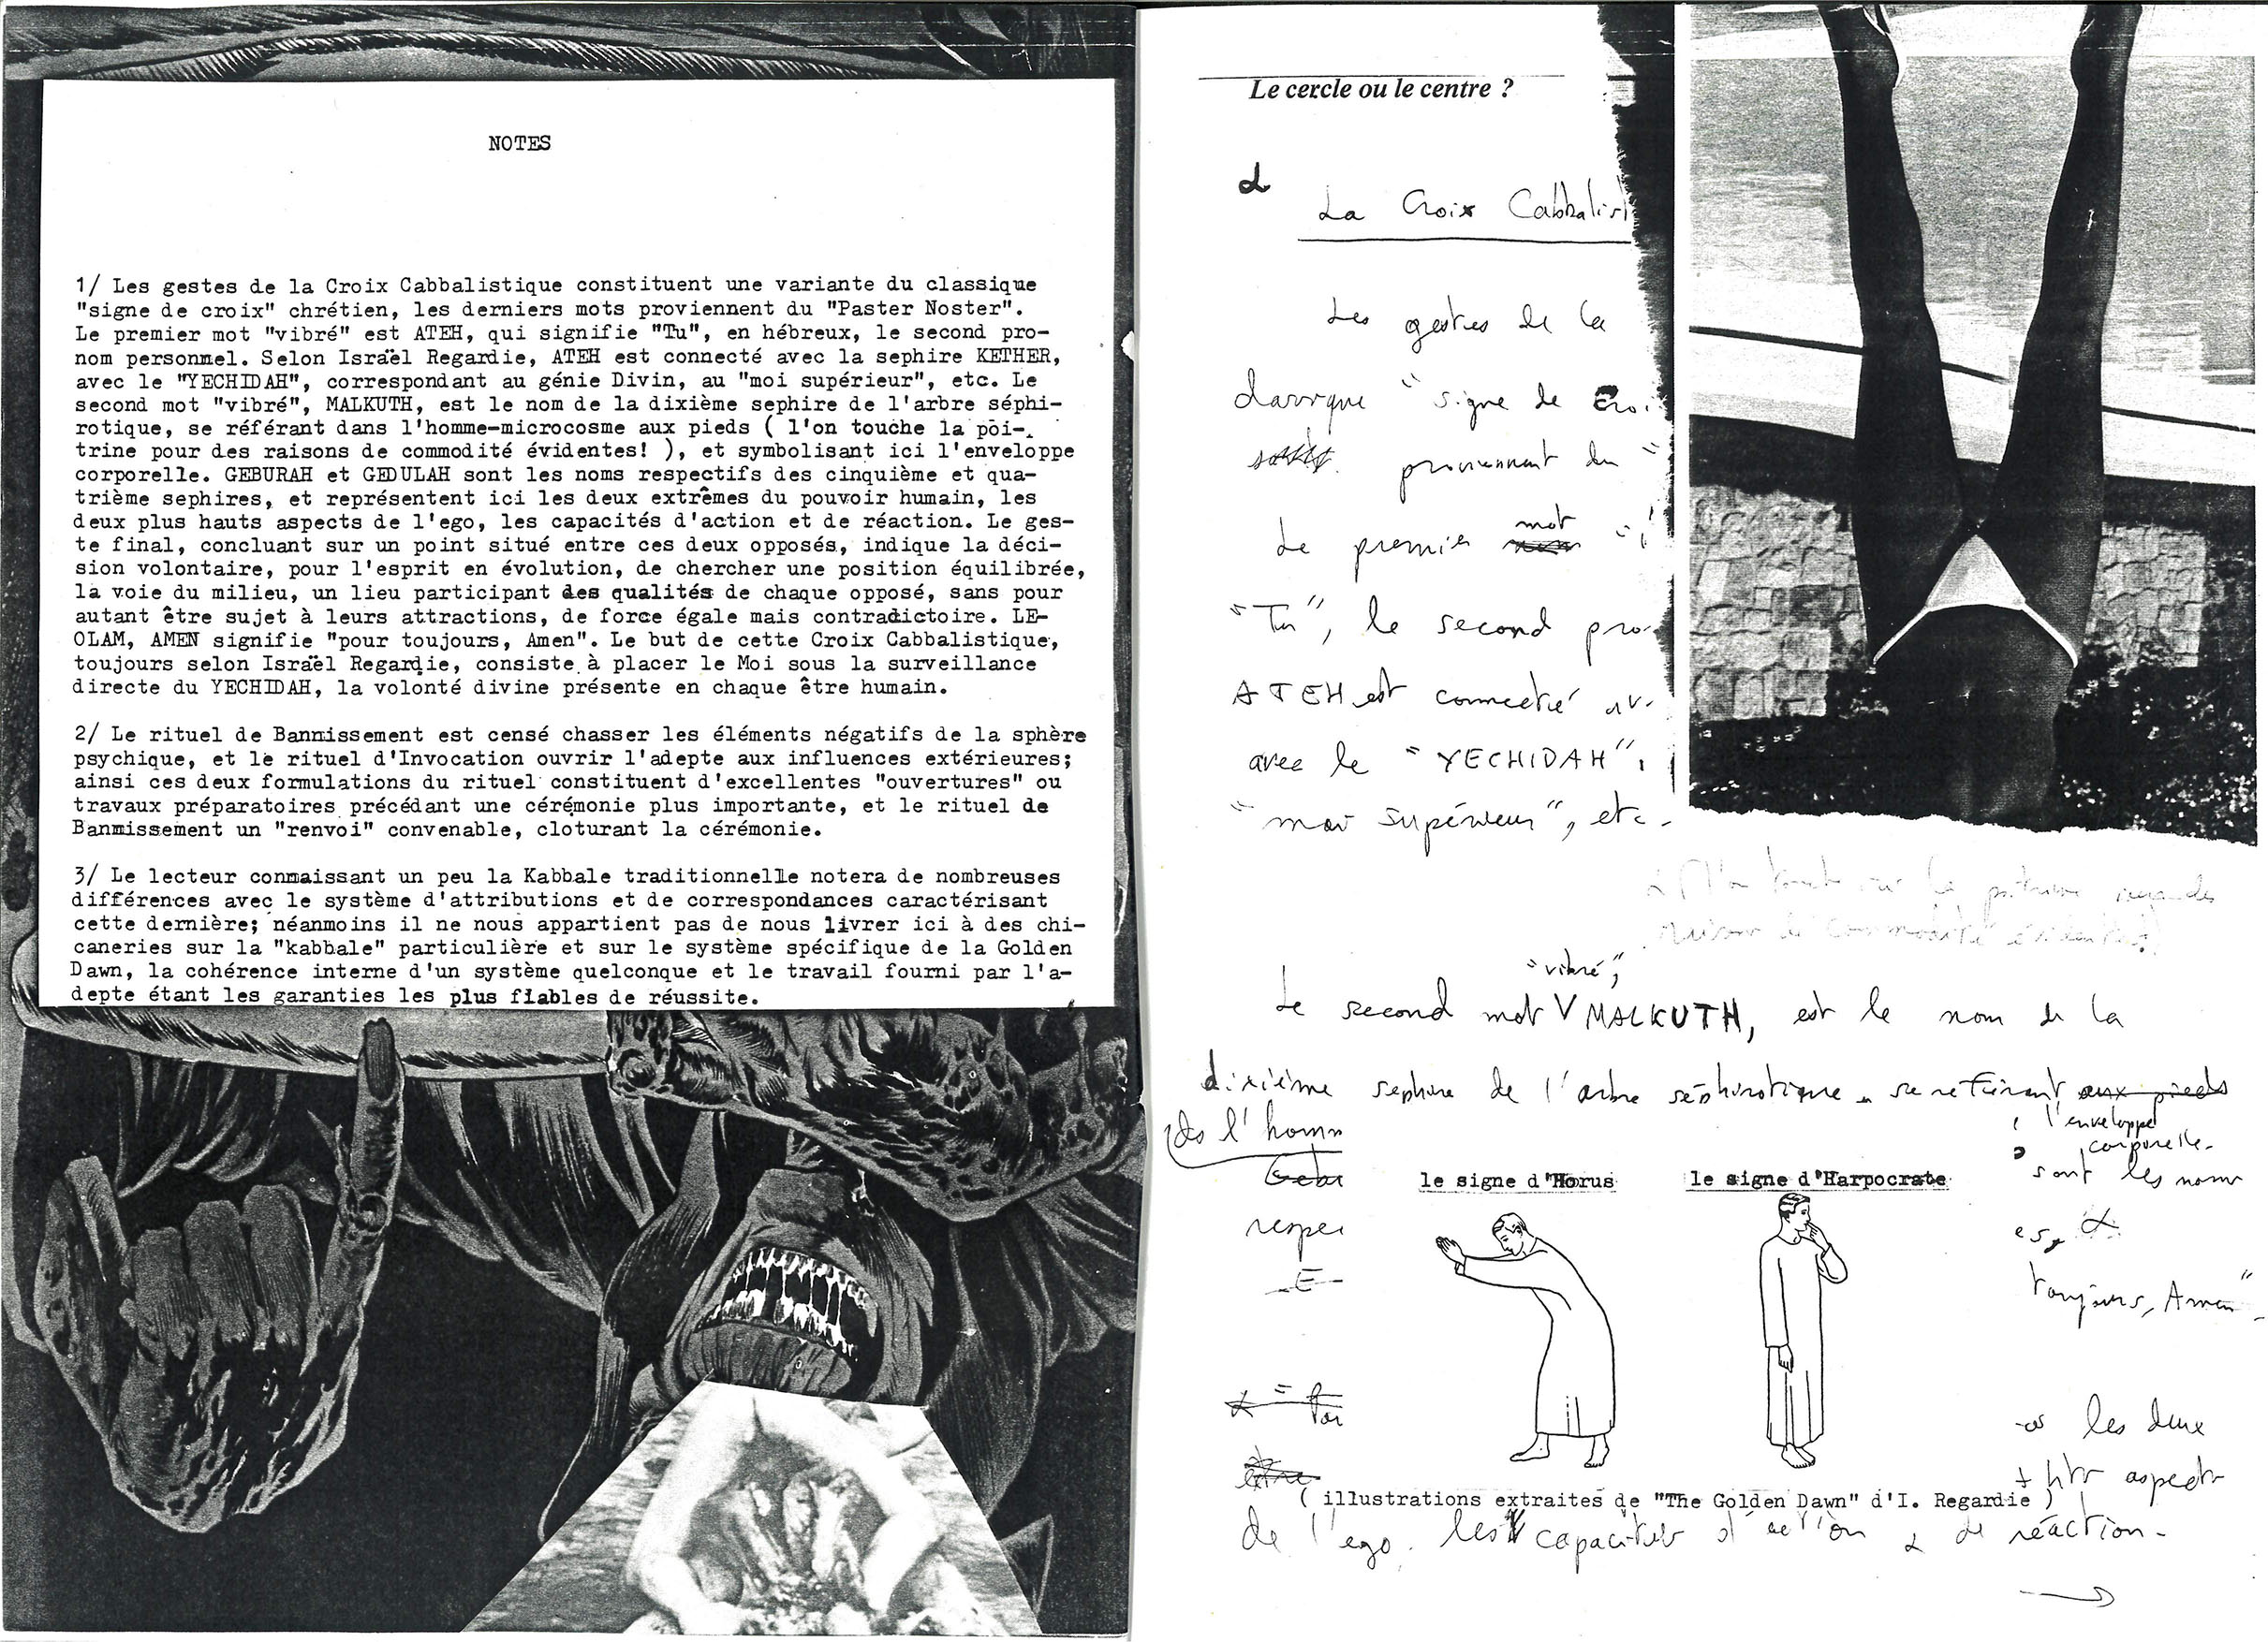 NOTES
1/ Les gestes de la Croix Cabbalistique constituent une variante du classique
"signe de croix" chrétien, les derniers mots proviennent du "Paster Noster".
Le premier mot "vibré" est ATEH, qui signifie "Tu", en hébreux, le second pro-
nom personnel. Selon Israël Regardie, ATEH est connecté avec la sephire KETHER,
avec le "YECHIDAH", correspondant au génie Divin, au "moi supérieur", etc. Le
second mot "vibré", MALKUTH, est le nom de la dixième sephire de l'arbre séphi-
rotique, se référant dans l'homme-microcosme aux pieds ( l'on touche la poi-
trine pour des raisons de commodité évidentes! ), et symbolisant ici l'enveloppe
corporelle. GEBURAH et GEDULAH sont les noms respectifs des cinquième et qua-
trième sephires, et représentent ici les deux extrêmes du pouvoir humain, les
deux plus hauts aspects de l'ego, les capacités d'action et de réaction. Le ges-
te final, concluant sur un point situé entre ces deux opposés, indique la déci-
sion volontaire, pour l'esprit en évolution, de chercher une position équilibrée,
la voie du milieu, un lieu participant des qualités de chaque opposé, sans pour
autant être sujet à leurs attractions, de force égale mais contradictoire. LE-
OLAM, AMEN signifie "pour toujours, Amen". Le but de cette Croix Cabbalistique,
toujours selon Israël Regardie, consiste à placer le Moi sous la surveillance
directe du YECHIDAH, la volonté divine présente en chaque être humain.
2/ Le rituel de Bannissement est censé chasser les éléments négatifs de la sphère
psychique, et le rituel d'Invocation ouvrir l'adepte aux influences extérieures;
ainsi ces deux formulations du rituel constituent d'excellentes "ouvertures" ou
travaux préparatoires précédant une cérémonie plus importante, et le rituel de
Bannissement un "renvoi" convenable, cloturant la cérémonie.
3/ Le lecteur connaissant un peu la Kabbale traditionnelle notera de nombreuses
différences avec le système d'attributions et de correspondances caractérisant
cette dernière; néanmoins il ne nous appartient pas de nous livrer ici à des chi-
caneries sur la "kabbale" particulière et sur le système spécifique de la Golden
Dawn, la cohérence interne d'un système quelconque et le travail fourni par l'a-
depte étant les garanties les plus fiables de réussite.
Le cercle ou le centre ?
La Croix Cabbalist
Les gestes de la
"signe de Croi
proviennent du "
Le premier mot
"Tu", le second pro
ATEH est connecté av
avec le "YECHIDAH",
"moi supérieur", etc.
"vibré",
Le second mot V MALKUTH, est le nom de la
dixième sephire de l'arbre séphirotique se référant aux pieds
ds l'homm
l'enveloppe
corporelle.
Gebu
sont les noms
respec
toujours, Amen"
les deux
+ hts aspects
le signe d'Horus
le signe d'Harpocrate
( illustrations extraites de "The Golden Dawn" d'I. Regardie )
de l'ego, les capacités d'action & de réaction -